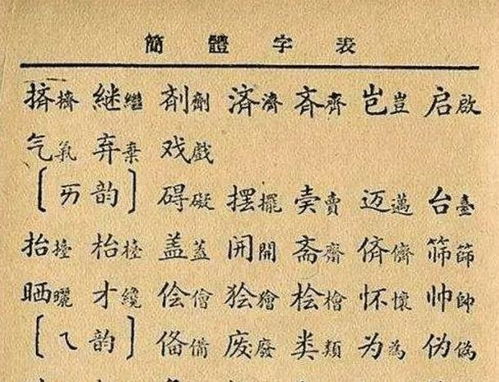 簡體字表
挤擠 継繼 剤劑 済濟 斉齊 岂豈 启啟
气氣 弃棄 戏戲
[ㄞ韵] 碍礙 摆擺 卖賣 迈邁 台臺
抬擡 枱檯 盖蓋 开開 斋齋 侪儕 筛篩
晒曬 才纔 侩儈 狯獪 桧檜 怀懷 帅帥
[ㄟ韵] 俻備 废廢 类類 为為 伪偽